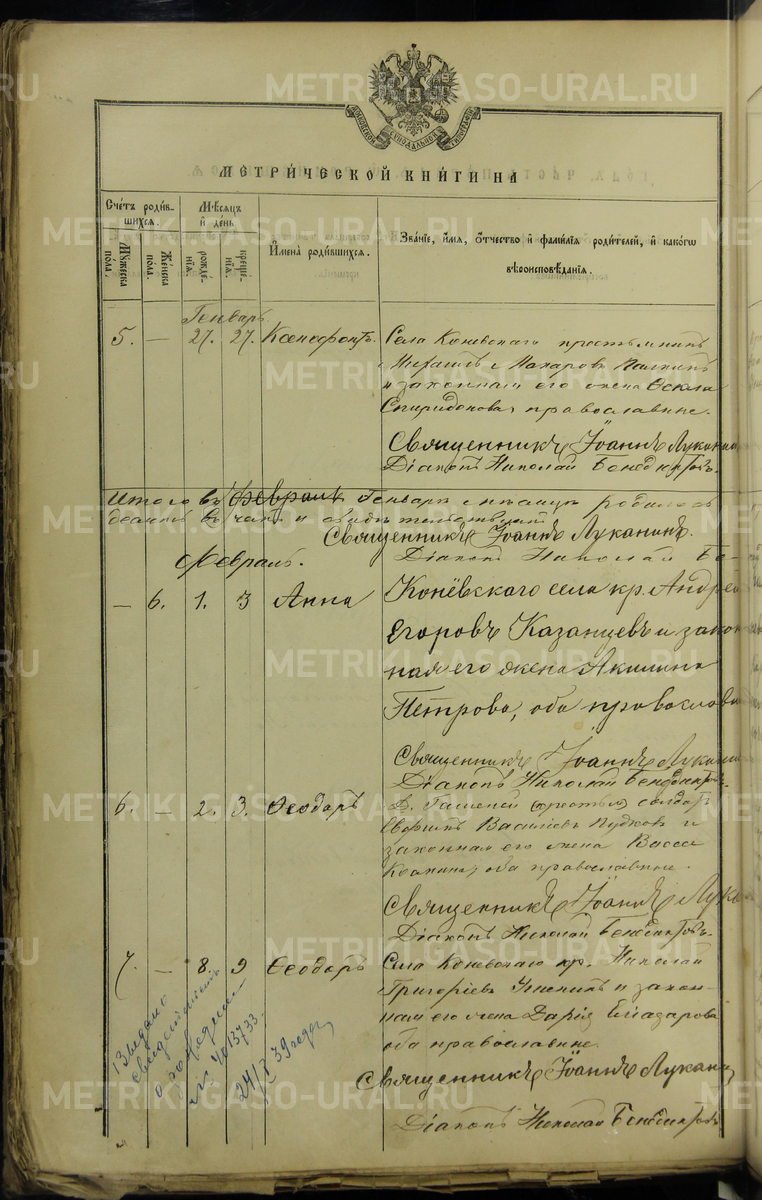 METRIKI.GASO-URAL.RU
МЕТРИ́ЧЕСКОЙ КНИ́ГИ НА
Счéтъ роди́в-
шихся.
Мѣ́сяцъ
и́ дéнь
Му́жеска
пóла.
Жéнска
пóла.
рождé-
нїя.
крещé-
нїя.
И҆менà роди́вшихся.
Звáнїе, и҆́мя, ѻ҆́тчество и҆ фами́лїя роди́телей, и҆ какóгѡ
вѣроисповѣ́данїя.
Генварь
5. — 27. 27. Ксенофонтъ.
Села Коневскаго
Макаровъ
и законная его жена Ѳекла
Спиридонова православные.
Священникъ Іоаннъ Лукани
Діаконъ Николай Бенедиктовъ.
Итого въ Февралѣ Генварѣ мѣсяцѣ родилось
Священникъ Іоаннъ Луканинъ.
Діаконъ Николай Бе-
Февраль.
— 6. 1. 3 Анна
Конёвскаго села кр. Андрей
Егоровъ Казанцевъ и закон
ная его жена Акилина
Петрова, оба православн
Священникъ Іоаннъ Лукани
Діаконъ Николай Бенедиктовъ.
6. — 2. 3. Ѳеодоръ
Васильевъ и
законная его жена Васса
оба православные.
Священникъ Іоаннъ Лука
Діаконъ Николай Бенедиктовъ.
7. — 8. 9 Ѳеодоръ
Села Коневскаго кр. Николай
Григорьевъ и закон-
ная его жена Дарья Елиазарова
оба православные.
Священникъ Іоаннъ Лукани
Діаконъ Николай Бенедиктовъ
Выдано
свидетельство
о рождении
24/X 39 года